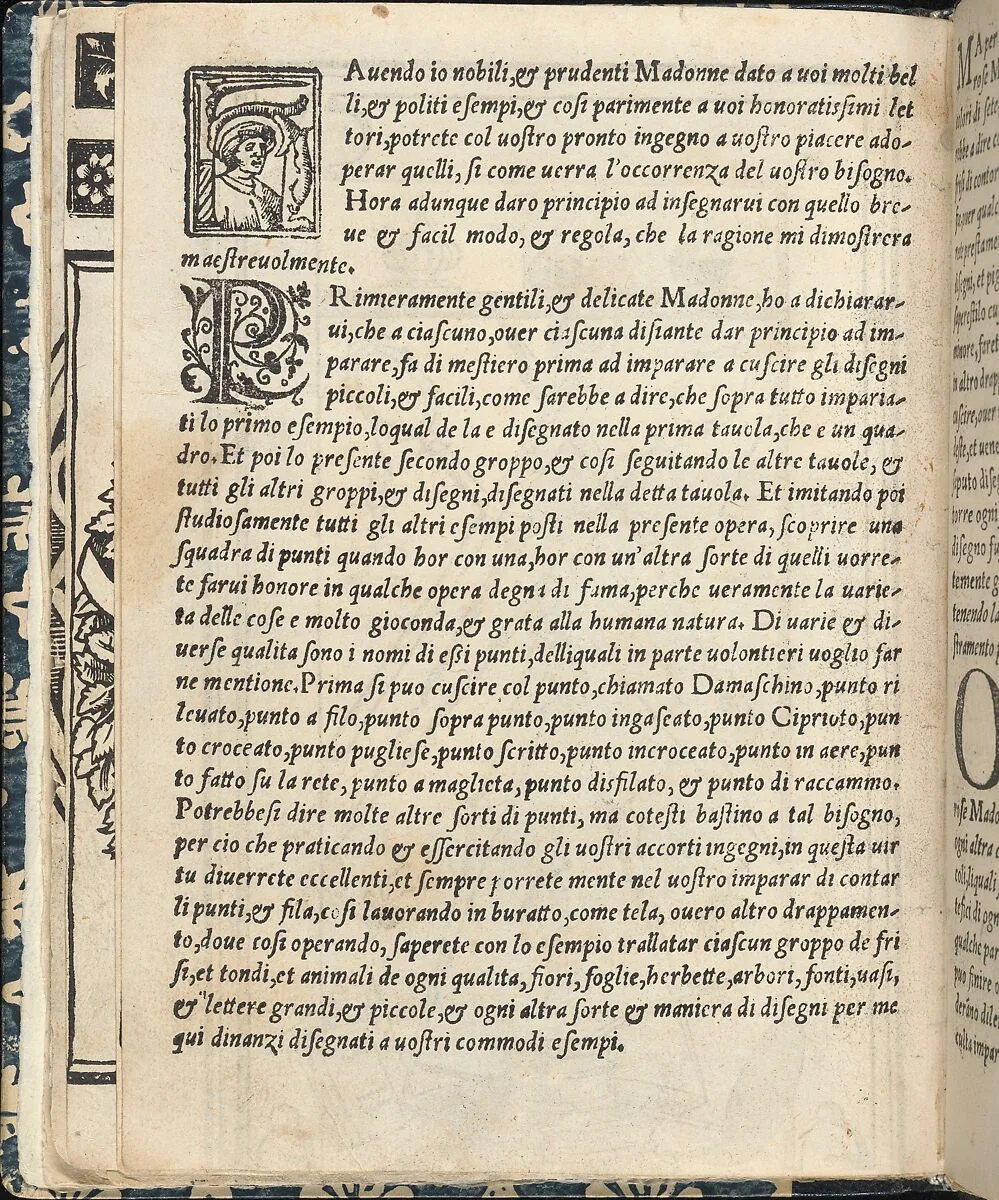 HAuendo io nobili,& prudenti Madonne dato a uoi molti bel
li,& politi eſempi,& coſi parimente a uoi honoratiſſimi let
tori,potrete col uoſtro pronto ingegno a uoſtro piacere ado-
perar quelli, ſi come uerra l'occorrenza del uoſtro biſogno.
Hora adunque daro principio ad inſegnarui con quello bre-
ue & facil modo, & regola, che la ragione mi dimoſtrera
maeſtreuolmente.
PRimieramente gentili,& delicate Madonne,ho a dichiarar-
ui,che a ciaſcuno,ouer ciaſcuna diſiante dar principio ad im-
parare,fa di meſtiero prima ad imparare a cuſcire gli diſegni
piccoli,& facili,come ſarebbe a dire,che ſopra tutto imparia-
ti lo primo eſempio,loqual de la e diſegnato nella prima tauola,che e un qua-
dro.Et poi lo preſente ſecondo groppo,& coſi ſeguitando le altre tauole, &
tutti gli altri groppi,& diſegni,diſegnati nella detta tauola. Et imitando poi
ſtudioſamente tutti gli altri eſempi poſti nella preſente opera, ſcoprire una
ſquadra di punti quando hor con una,hor con un'altra ſorte di quelli uorre-
te farui honore in qualche opera degna di fama,perche ueramente la uarie-
ta delle coſe e molto gioconda,& grata alla humana natura. Di uarie & di-
uerſe qualita ſono i nomi di eſſi punti,delliquali in parte uolontieri uoglio far
ne mentione.Prima ſi puo cuſcire col punto,chiamato Damaſchino,punto ri
leuato,punto a filo,punto ſopra punto,punto ingaſeato,punto Ciprioto,pun
to croceato,punto puglieſe,punto ſcritto,punto incroceato,punto in aere,pun
to fatto ſu la rete, punto a maglieta, punto disfilato, & punto di raccammo.
Potrebbeſi dire molte altre ſorti di punti, ma coteſti baſtino a tal biſogno,
per cio che praticando & eſſercitando gli uoſtri accorti ingegni,in queſta uir
tu diuerrete eccellenti,et ſempre porrete mente nel uoſtro imparar di contar
li punti,& fila,coſi lauorando in buratto,come tela, ouero altro drappamen-
to,doue coſi operando, ſaperete con lo eſempio trallatar ciaſcun groppo de fri
ſi,et tondi,et animali de ogni qualita,fiori,foglie,herbette,arbori,fonti,uaſi,
& lettere grandi,& piccole,& ogni altra ſorte & maniera di diſegni per me
qui dinanzi diſegnati a uoſtri commodi eſempi.